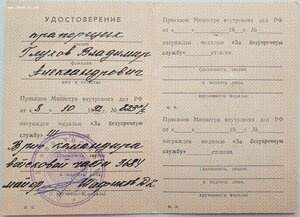 УДОСТОВЕРЕНИЕ
прапорщик
Глухов Владимир
фамилия
Александрович
имя и отчество
Приказом Министра внутренних дел РФ
от « 8 » 10 19
награжден медалью «За безупречную
службу» III степени.
Врио командира
войсковой части
майор
М. П.
Приказом Министра внутренних дел РФ
от «___» ________ 19__ г. №
награжден медалью «За безупречную
службу» степени.
(должность, звание
и подпись лица,
вручившего медаль)
М. П.
Приказом Министра внутренних дел РФ
от «___» ________ 19__ г. №
награжден медалью «За безупречную
службу» степени.
(должность, звание
и подпись лица,
вручившего медаль)
М. П.